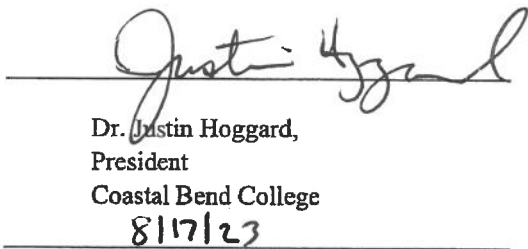 Justin Hoggard
Dr. Justin Hoggard,
President
Coastal Bend College
8/17/23